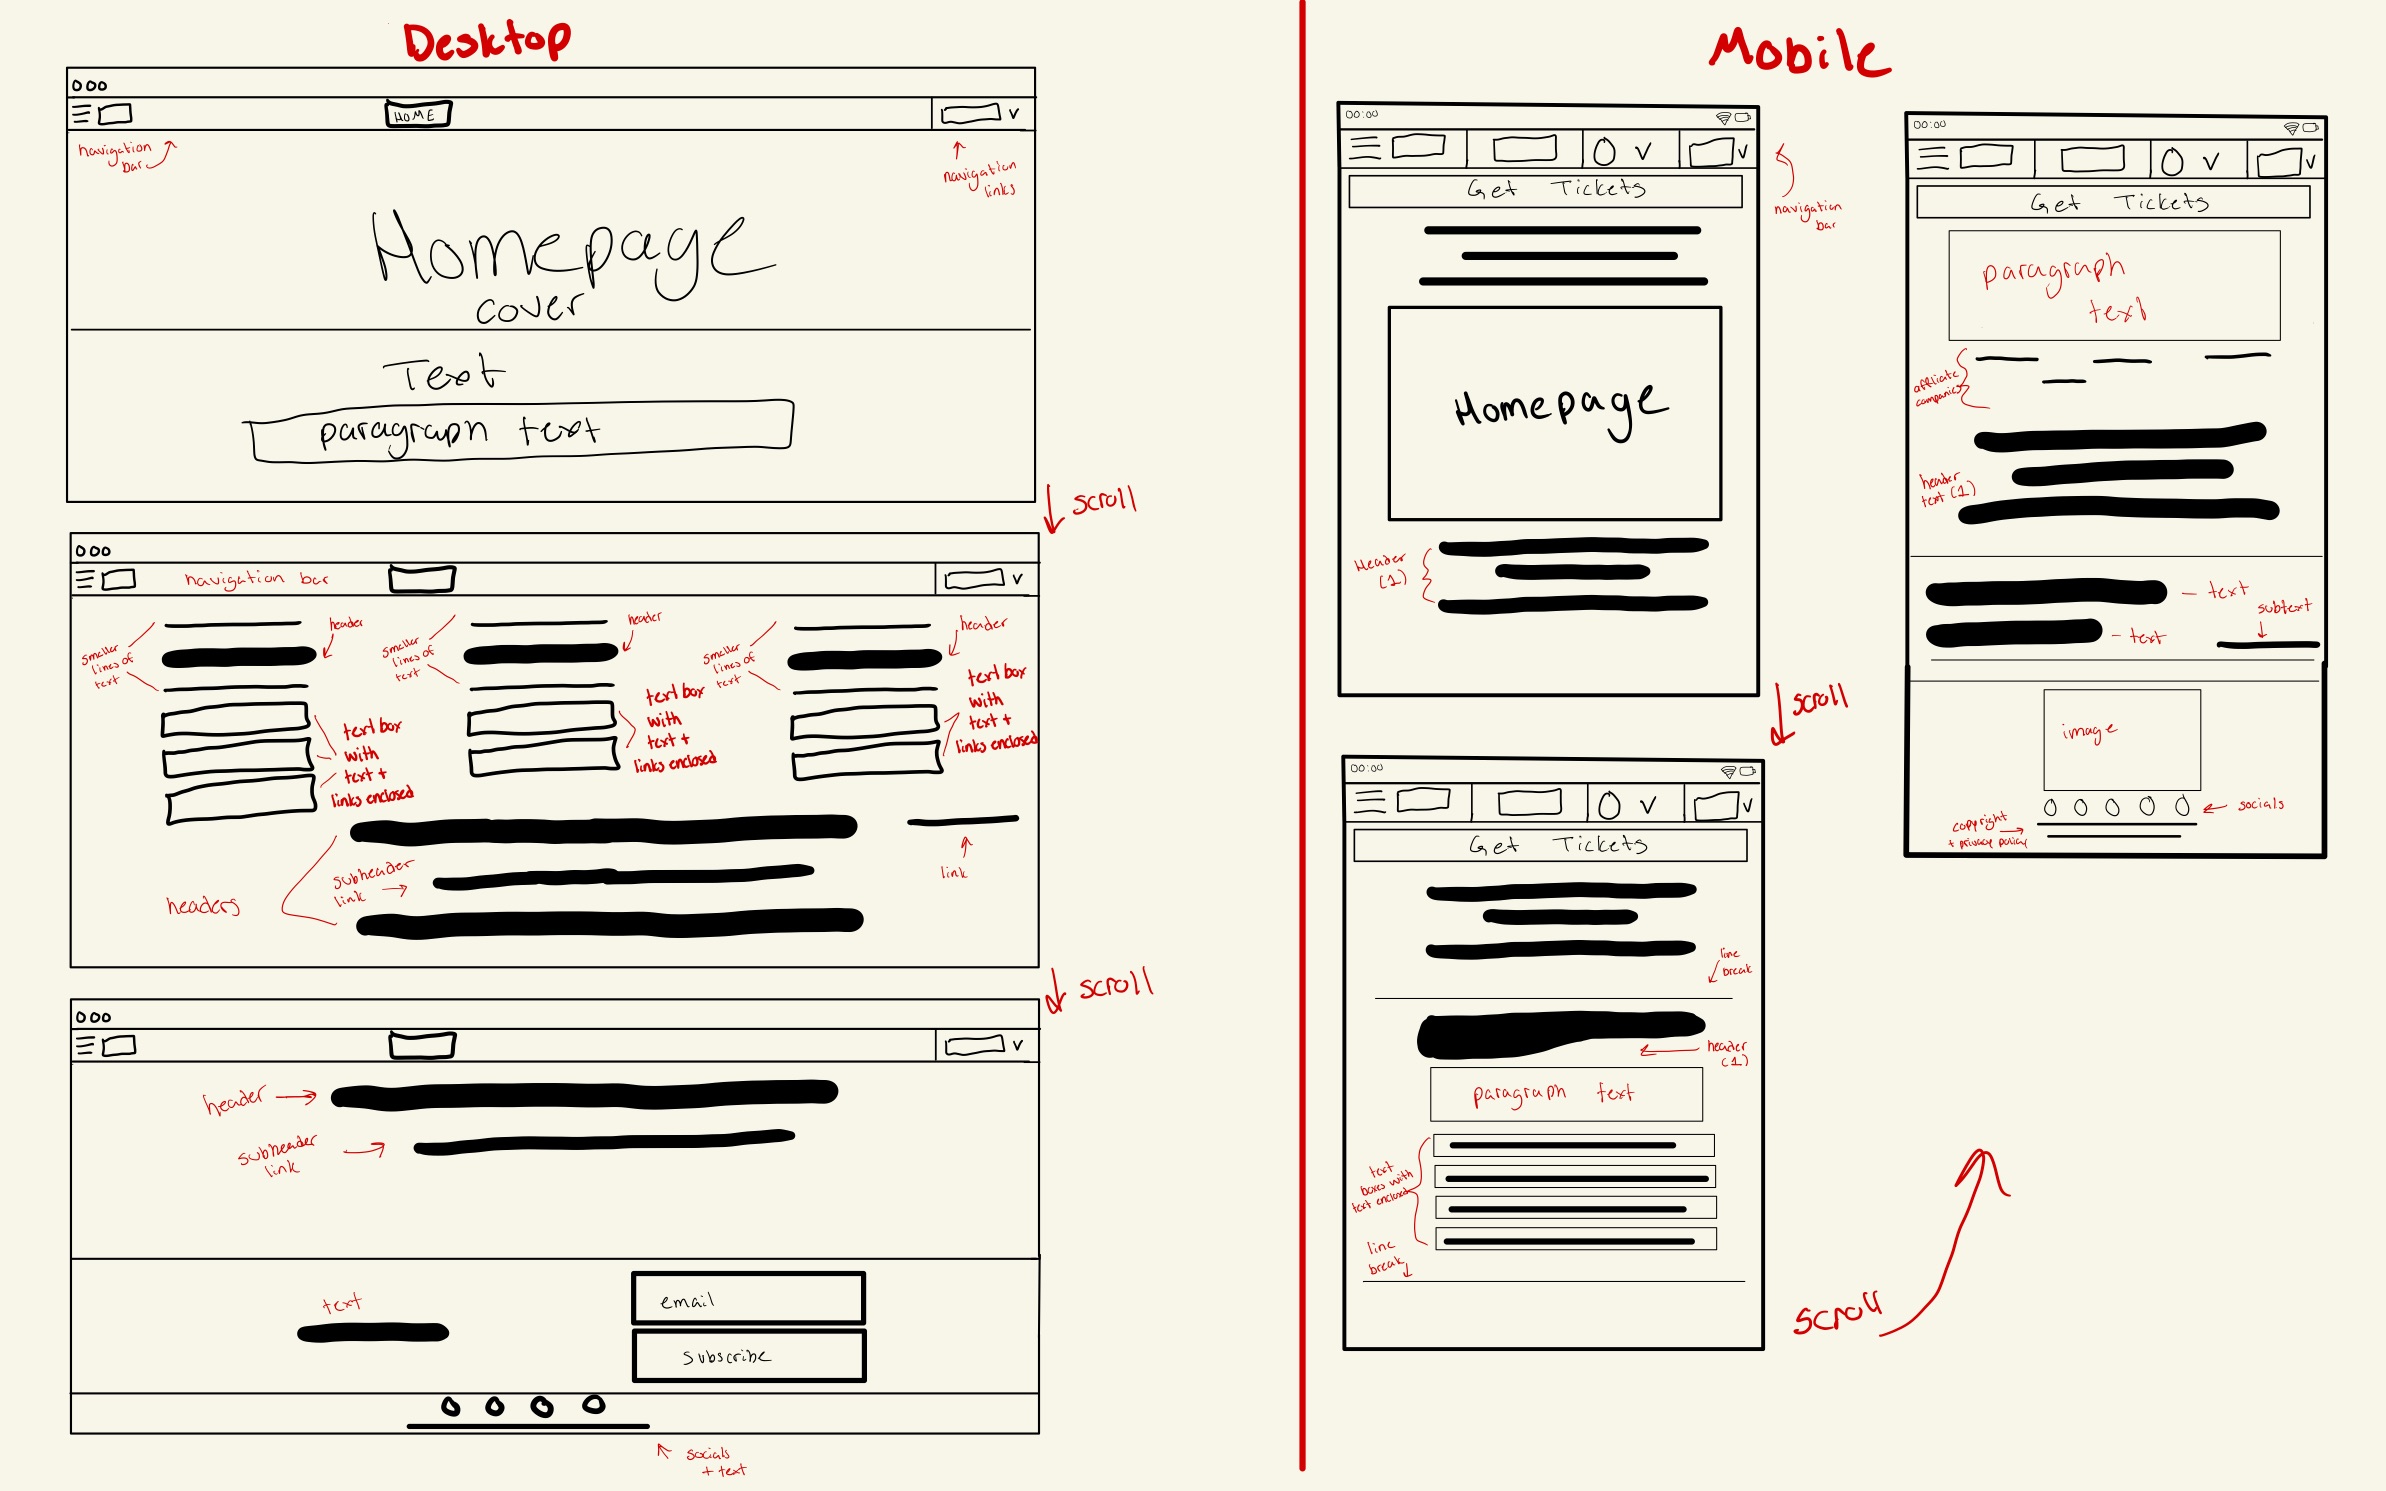 Desktop
HOME
navigation
bar
navigation
links
Homepage
cover
Text
paragraph text
scroll
navigation bar
smaller
lines of
text
header
text box
with
text +
links enclosed
smaller
lines of
text
header
text box
with
text +
links enclosed
smaller
lines of
text
header
text box
with
text +
links enclosed
headers
subheader
link
link
scroll
header
subheader
link
text
email
Subscribe
socials
+ text
Mobile
00:00
Get Tickets
navigation
bar
Homepage
Header
(1)
scroll
00:00
Get Tickets
line
break
header
(1)
paragraph text
text
boxes with
text enclosed
line
break
scroll
00:00
Get Tickets
paragraph
text
affiliate
companies
header
text (1)
text
subtext
text
image
socials
copyright
+ privacy policy